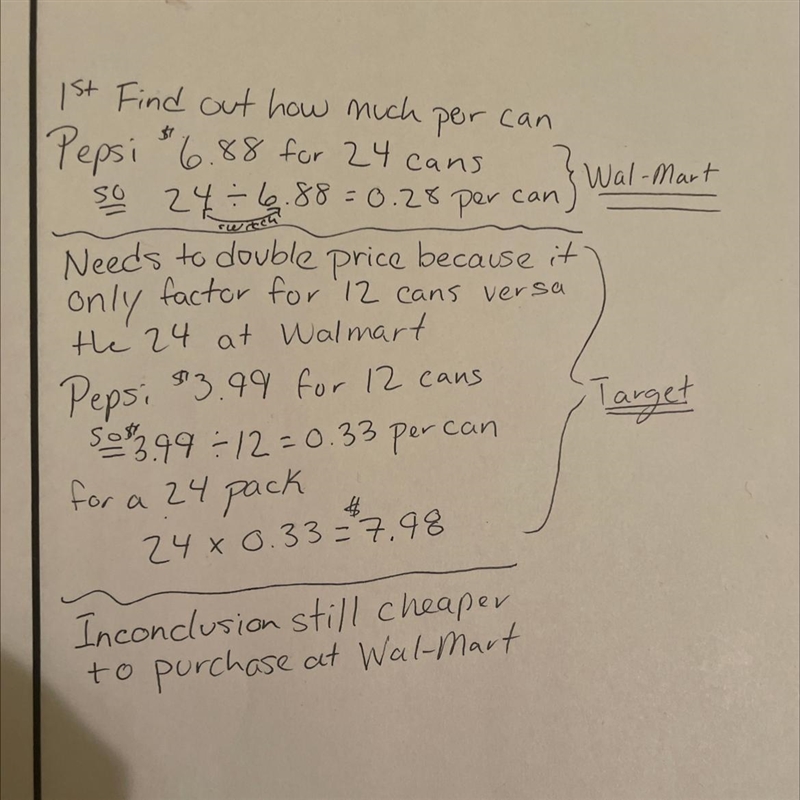 1st Find out how much per can
Pepsi $6.88 for 24 cans
so 24 ÷ 6.88 = 0.28 per can
switch
Wal-Mart
Needs to double price because it
only factor for 12 cans versa
the 24 at Walmart
Pepsi $3.99 for 12 cans
so $3.99 ÷ 12 = 0.33 per can
for a 24 pack
24 x 0.33 = $7.98
Target
Inconclusion still cheaper
to purchase at Wal-Mart